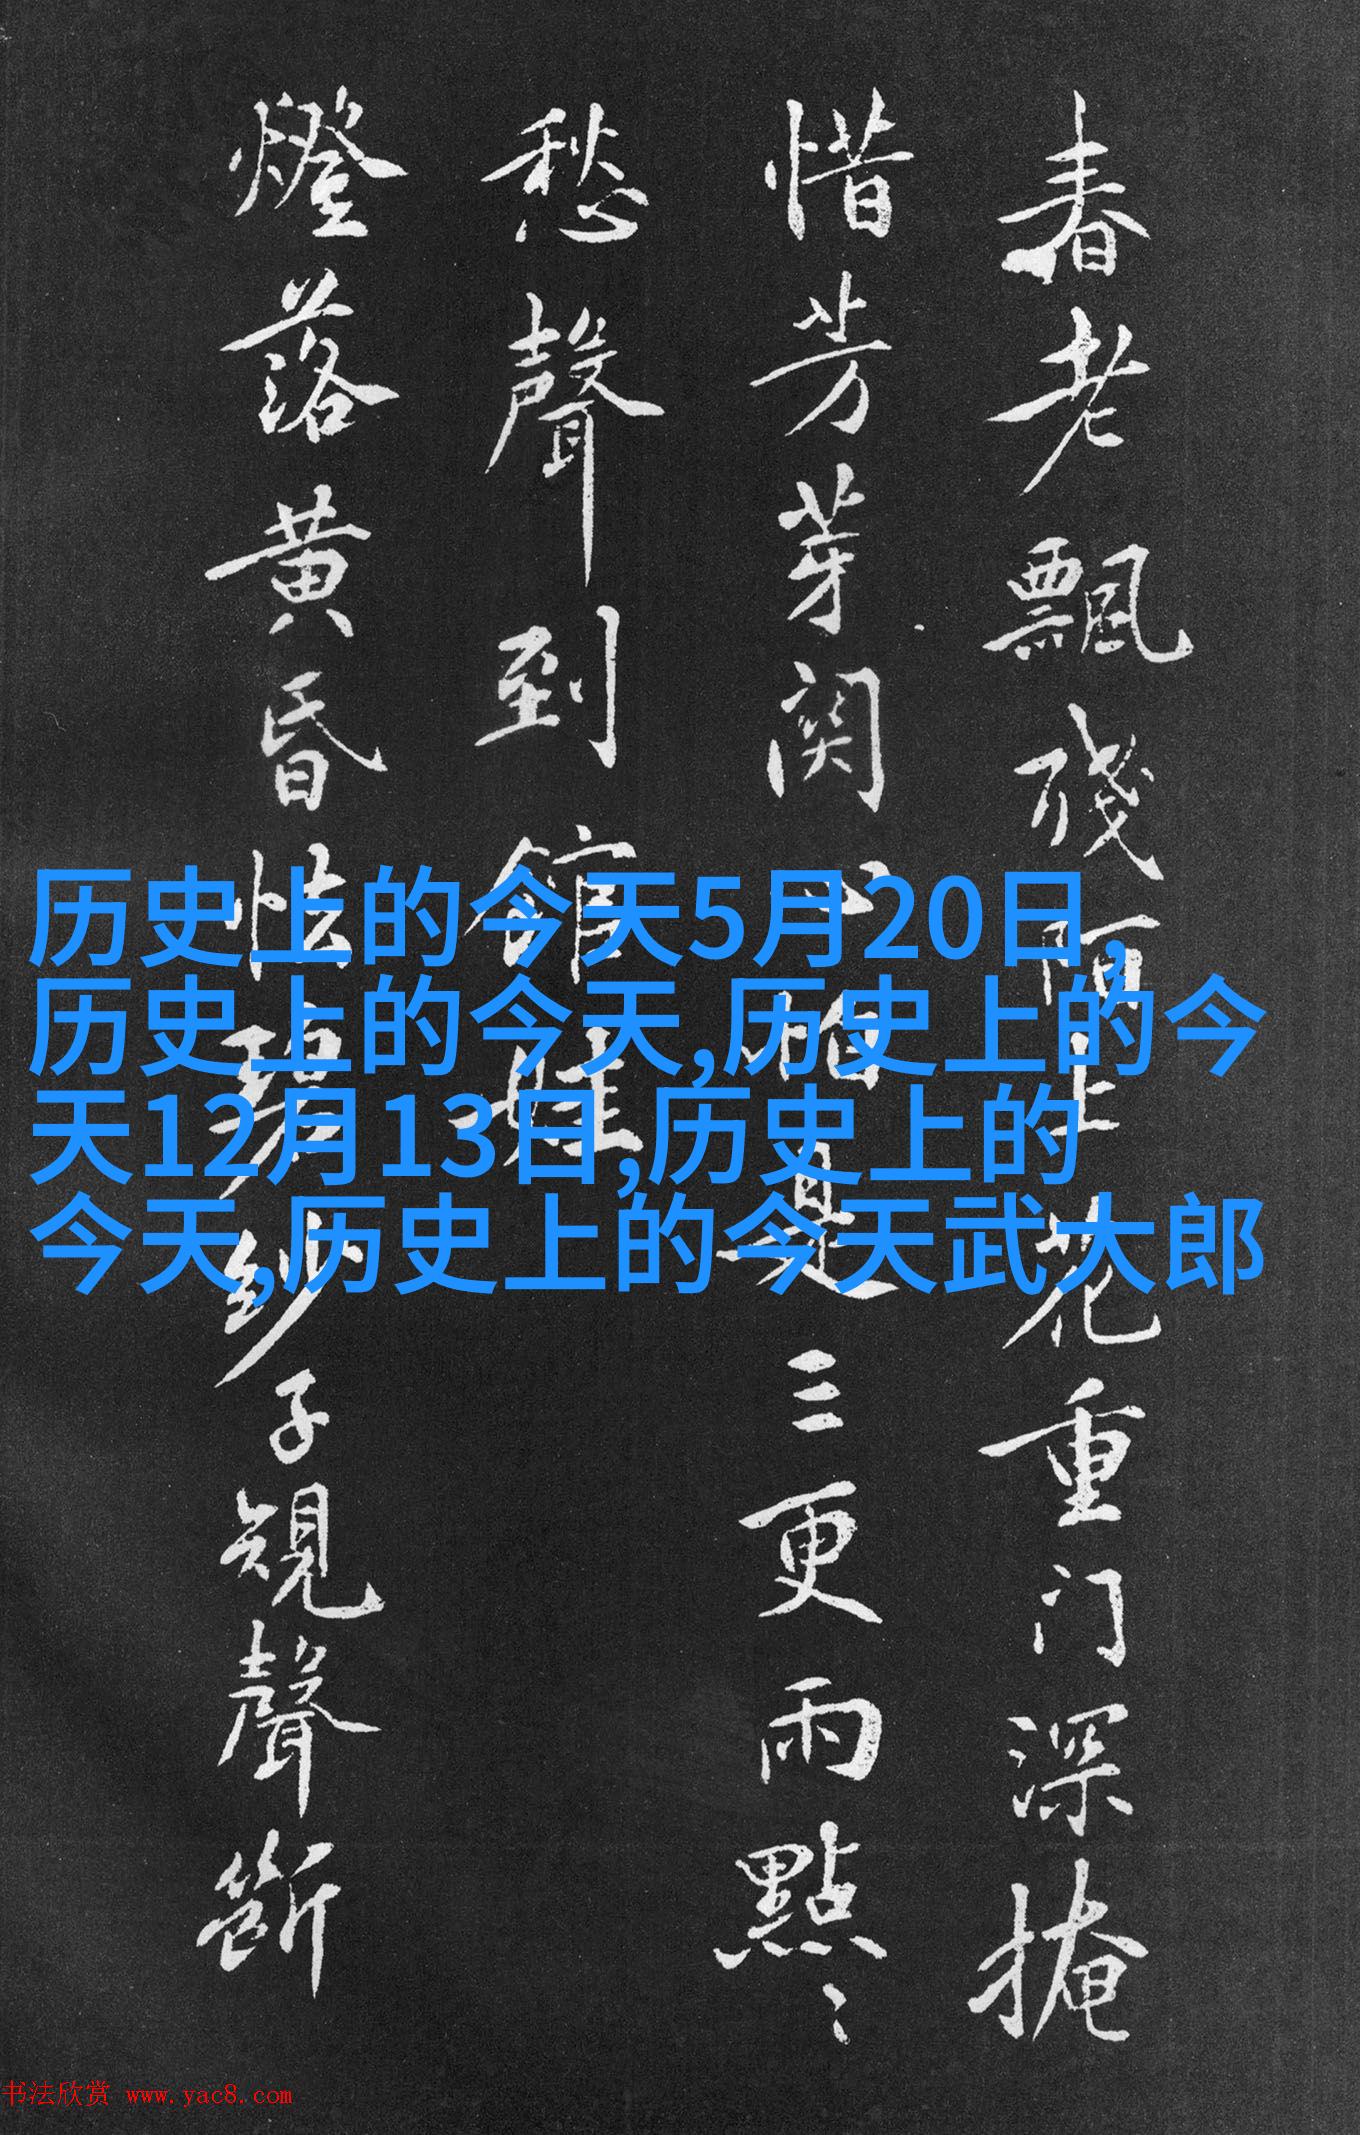 春老飄殘陌上花重门深掩
惜芳芽関心怕是三更雨點〻
愁聲到館娃
燈落黄昏怯碧紗子規聲斷
历史上的今天5月20日,
历史上的今天,历史上的今
天12月13日,历史上的
今天,历史上的今天武大郎
书法欣赏 www.yac8.com